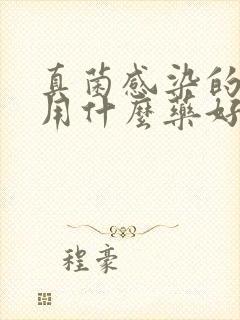 真菌感染的
用什麼藥好
程豪